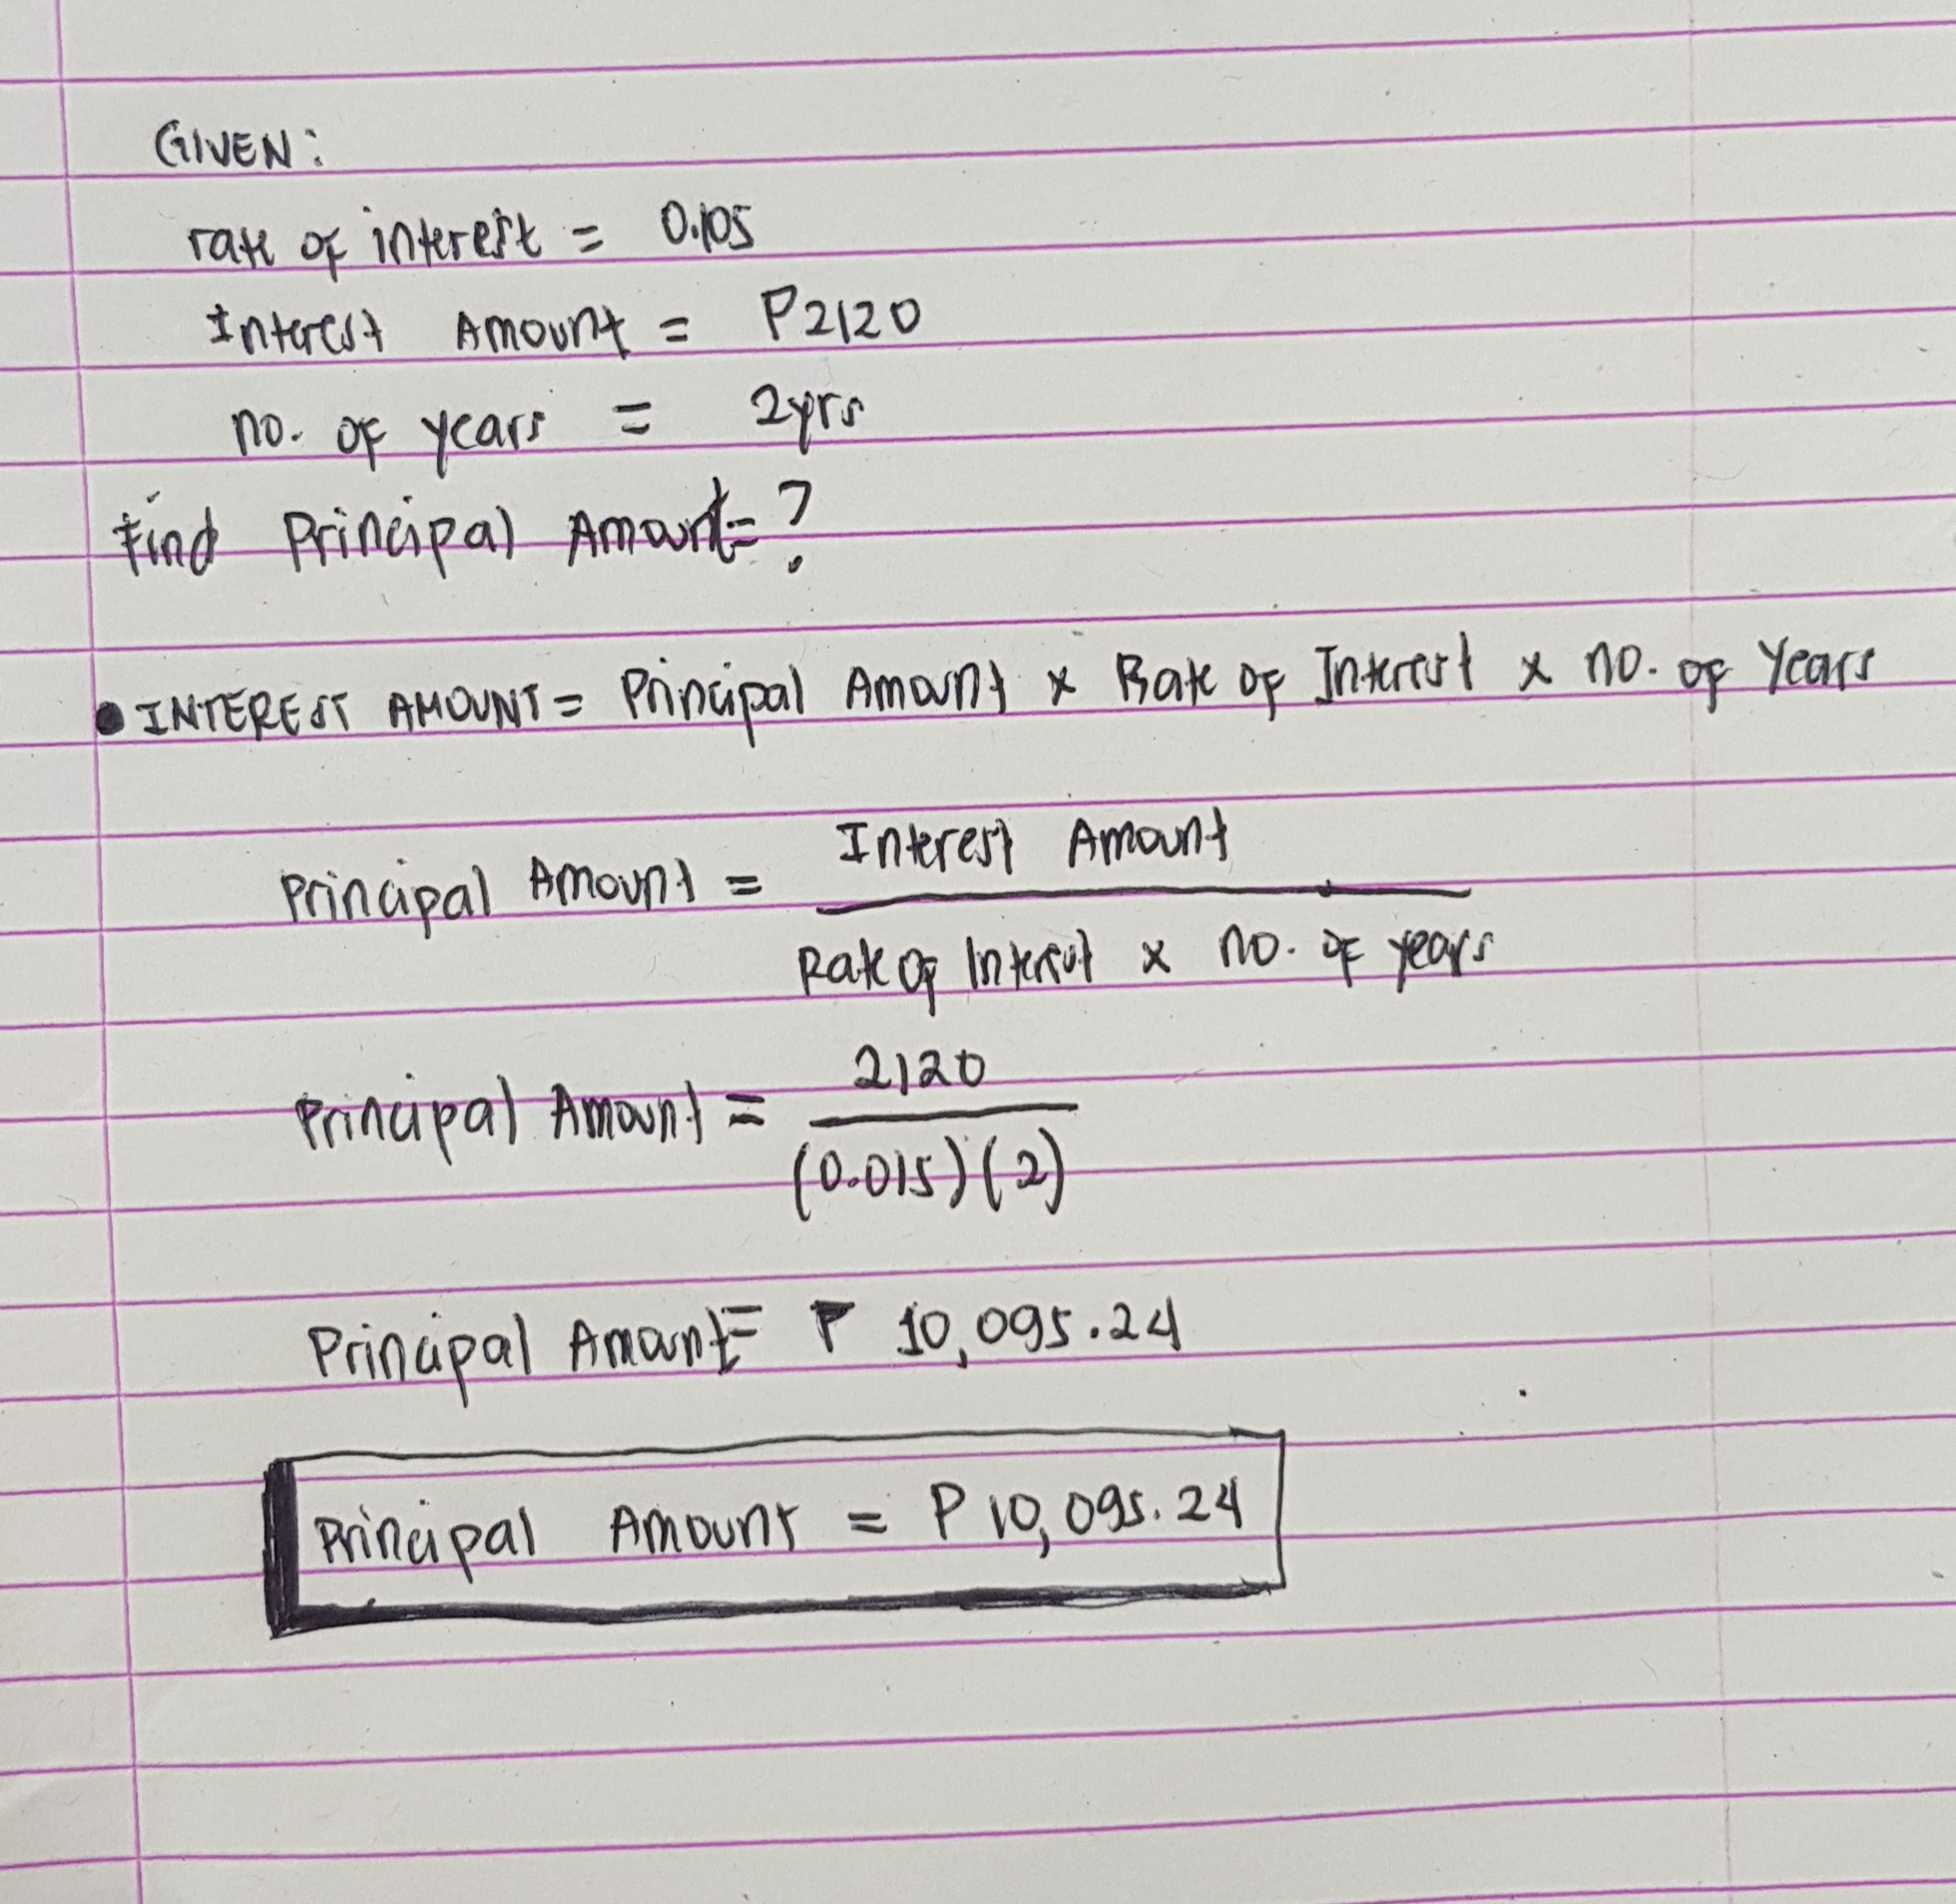 GIVEN:
rate of interest = 0.105
Interest Amount = P2120
no. of years = 2yrs
Find Principal Amount=?
• INTEREST AMOUNT = Principal Amount x Rate of Interest x no. of Years
Principal Amount = Interest Amount
Rate of Interest x no. of years
Principal Amount = 2120
(0.015)(2)
Principal Amount = P 10,095.24
Principal Amount = P 10,095.24